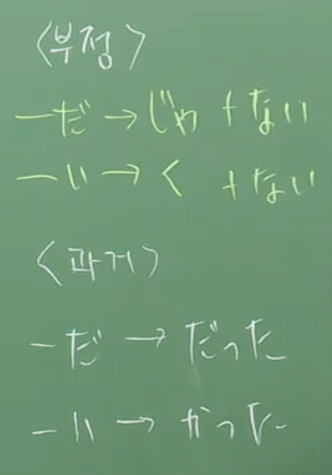 <부정>
ーだ → じゃ + ない
ーい → く + ない
<과거>
ーだ → だった
ーい → かった